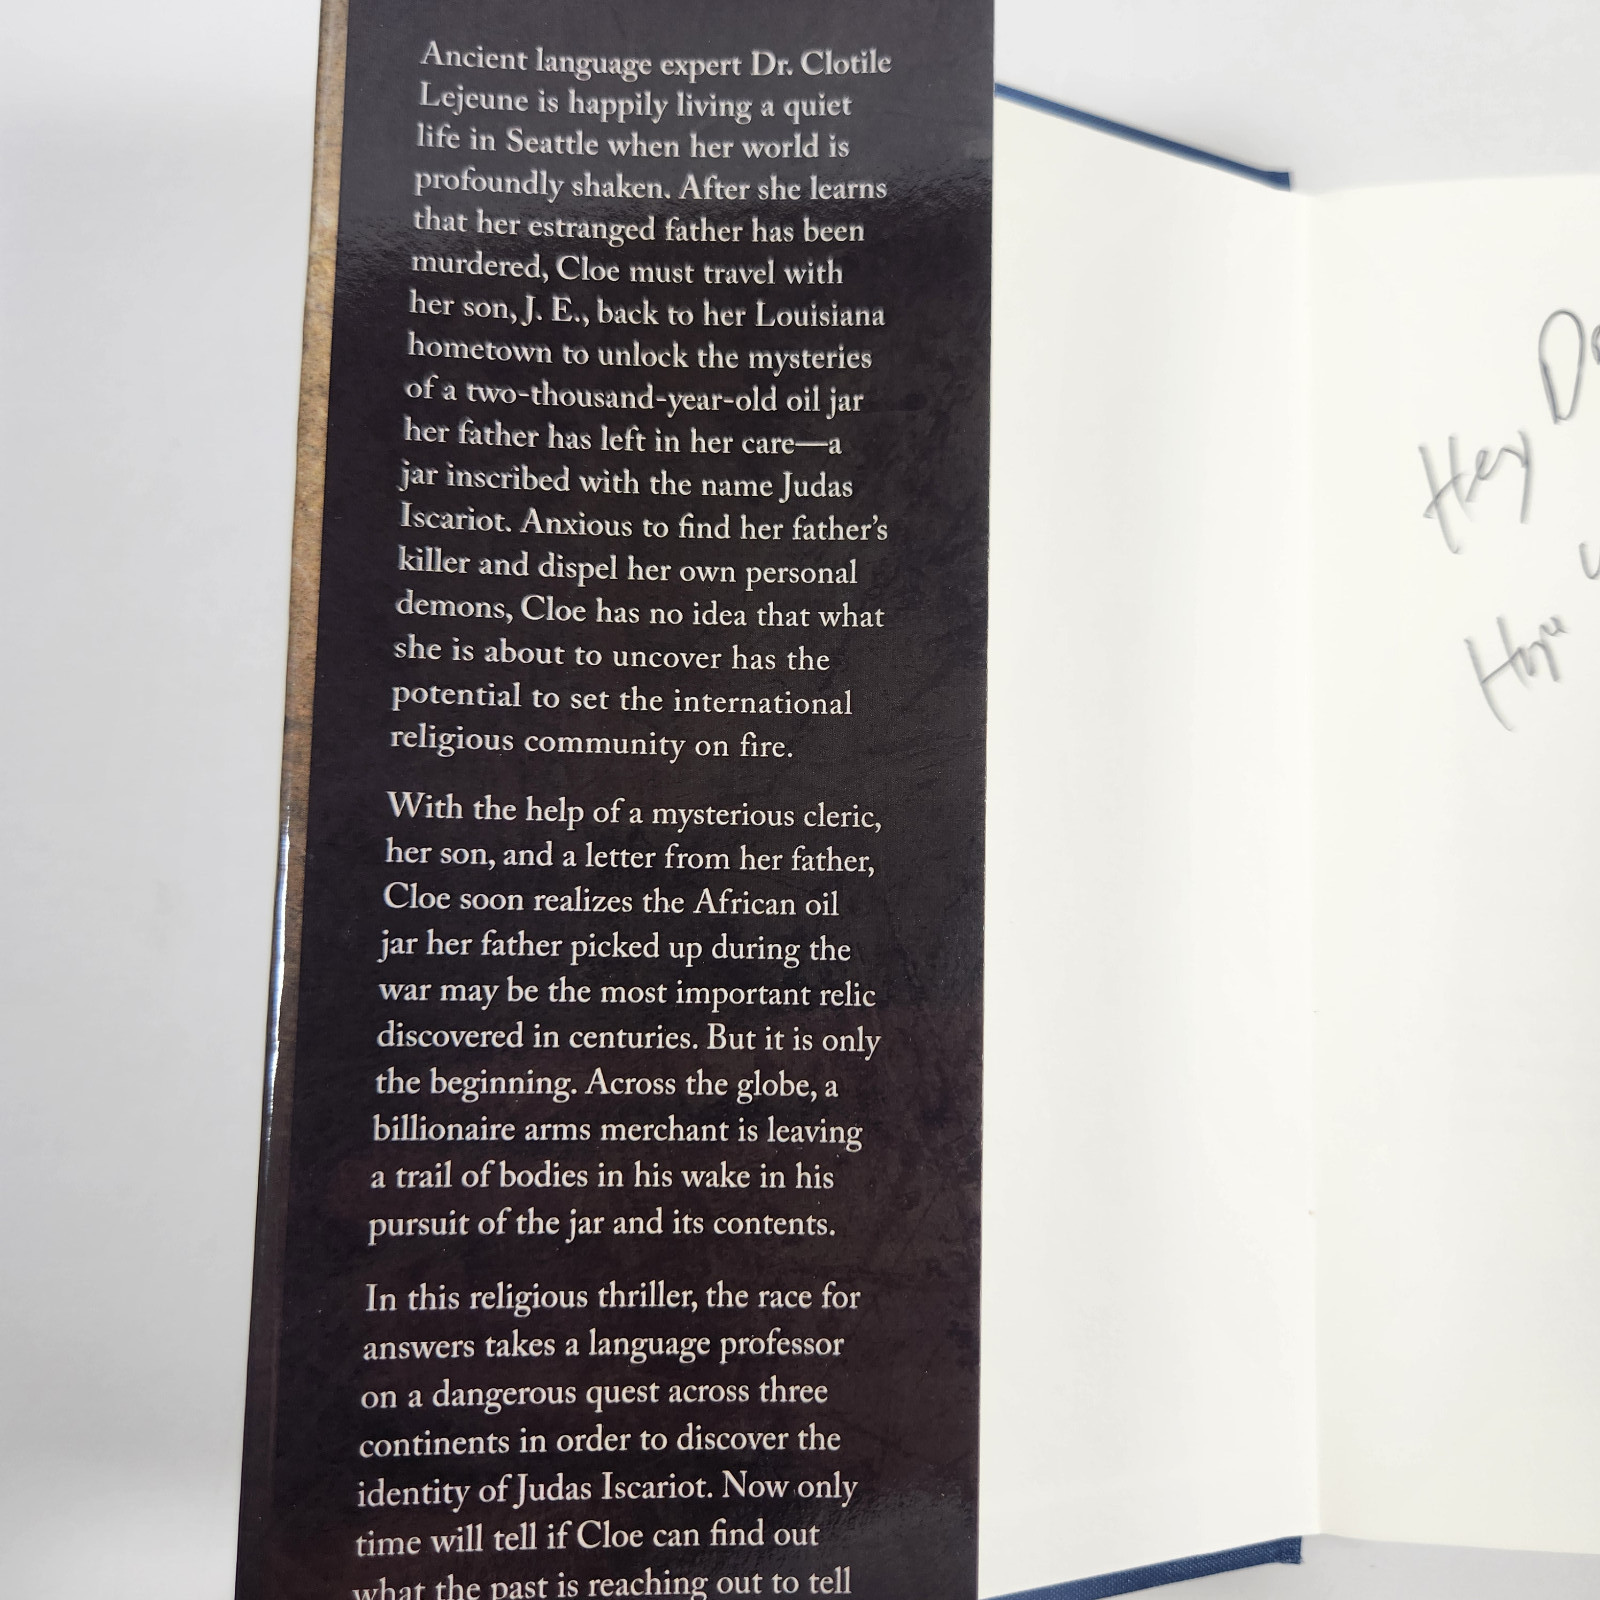 Ancient language expert Dr. Clotile
Lejeune is happily living a quiet
life in Seattle when her world is
profoundly shaken. After she learns
that her estranged father has been
murdered, Cloe must travel with
her son, J. E., back to her Louisiana
hometown to unlock the mysteries
of a two-thousand-year-old oil jar
her father has left in her care—a
jar inscribed with the name Judas
Iscariot. Anxious to find her father’s
killer and dispel her own personal
demons, Cloe has no idea that what
she is about to uncover has the
potential to set the international
religious community on fire.
With the help of a mysterious cleric,
her son, and a letter from her father,
Cloe soon realizes the African oil
jar her father picked up during the
war may be the most important relic
discovered in centuries. But it is only
the beginning. Across the globe, a
billionaire arms merchant is leaving
a trail of bodies in his wake in his
pursuit of the jar and its contents.
In this religious thriller, the race for
answers takes a language professor
on a dangerous quest across three
continents in order to discover the
identity of Judas Iscariot. Now only
time will tell if Cloe can find out
what the past is reaching out to tell
Hey
Hope